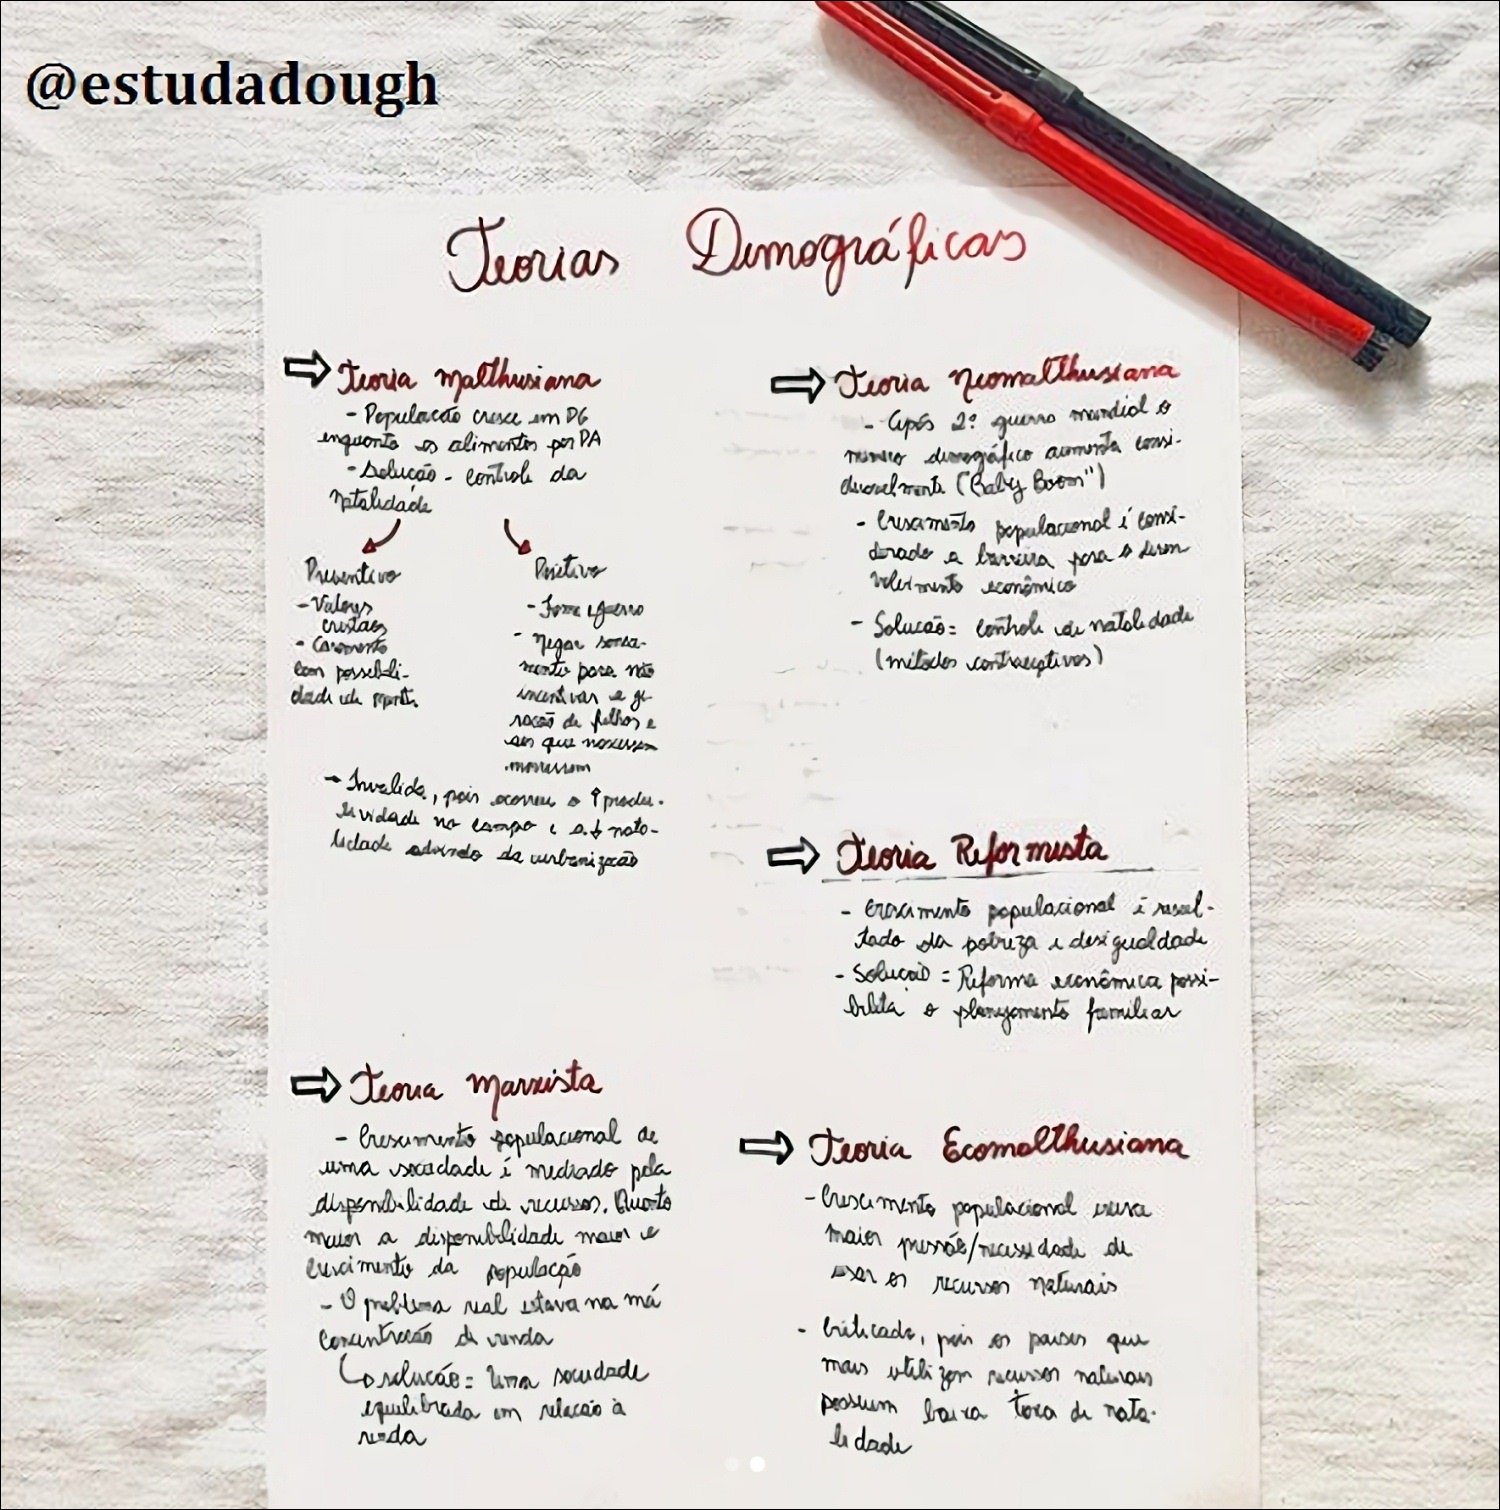 @estudadough
Teorias Demográficas
Teoria Malthusiana
- População cresce em PG
enquanto os alimentos por PA
- Solução - controle da
Natalidade
Preventivo
- Valores
cristãos
- Casamento
com possibili-
dade de
Positivo
- Fome e guerra
- Negar sanea-
mento para não
incentivar a ge-
ração de filhos e
aos que nascessem
morressem
- Invalida, pois ocorreu o ↑ produ-
tividade no campo e a ↓ nata-
lidade advindo da urbanização
Teoria Marxista
- Crescimento populacional de
uma sociedade é mediado pela
disponibilidade de recursos. Quanto
maior a disponibilidade maior o
crescimento da população
- O problema real estava na má
concentração de renda
solução = Uma sociedade
equilibrada em relação à
renda
Teoria Neomalthusiana
- Após 2ª guerra mundial o
número demográfico aumenta consi-
deravelmente ("Baby Boom")
- Crescimento populacional é consi-
derado a barreira para o desen
volvimento econômico
- Solução = controle de natalidade
(métodos contraceptivos)
Teoria Reformista
- Crescimento populacional é resul-
tado da pobreza e desigualdade
- Solução = Reforma econômica possi-
bilita o planejamento familiar
Teoria Ecomalthusiana
- Crescimento populacional
maior pressão/necessidade de
usar os recursos naturais
- Criticada, pois os países que
mais utilizam recursos naturais
possuem baixa taxa de nata-
lidade